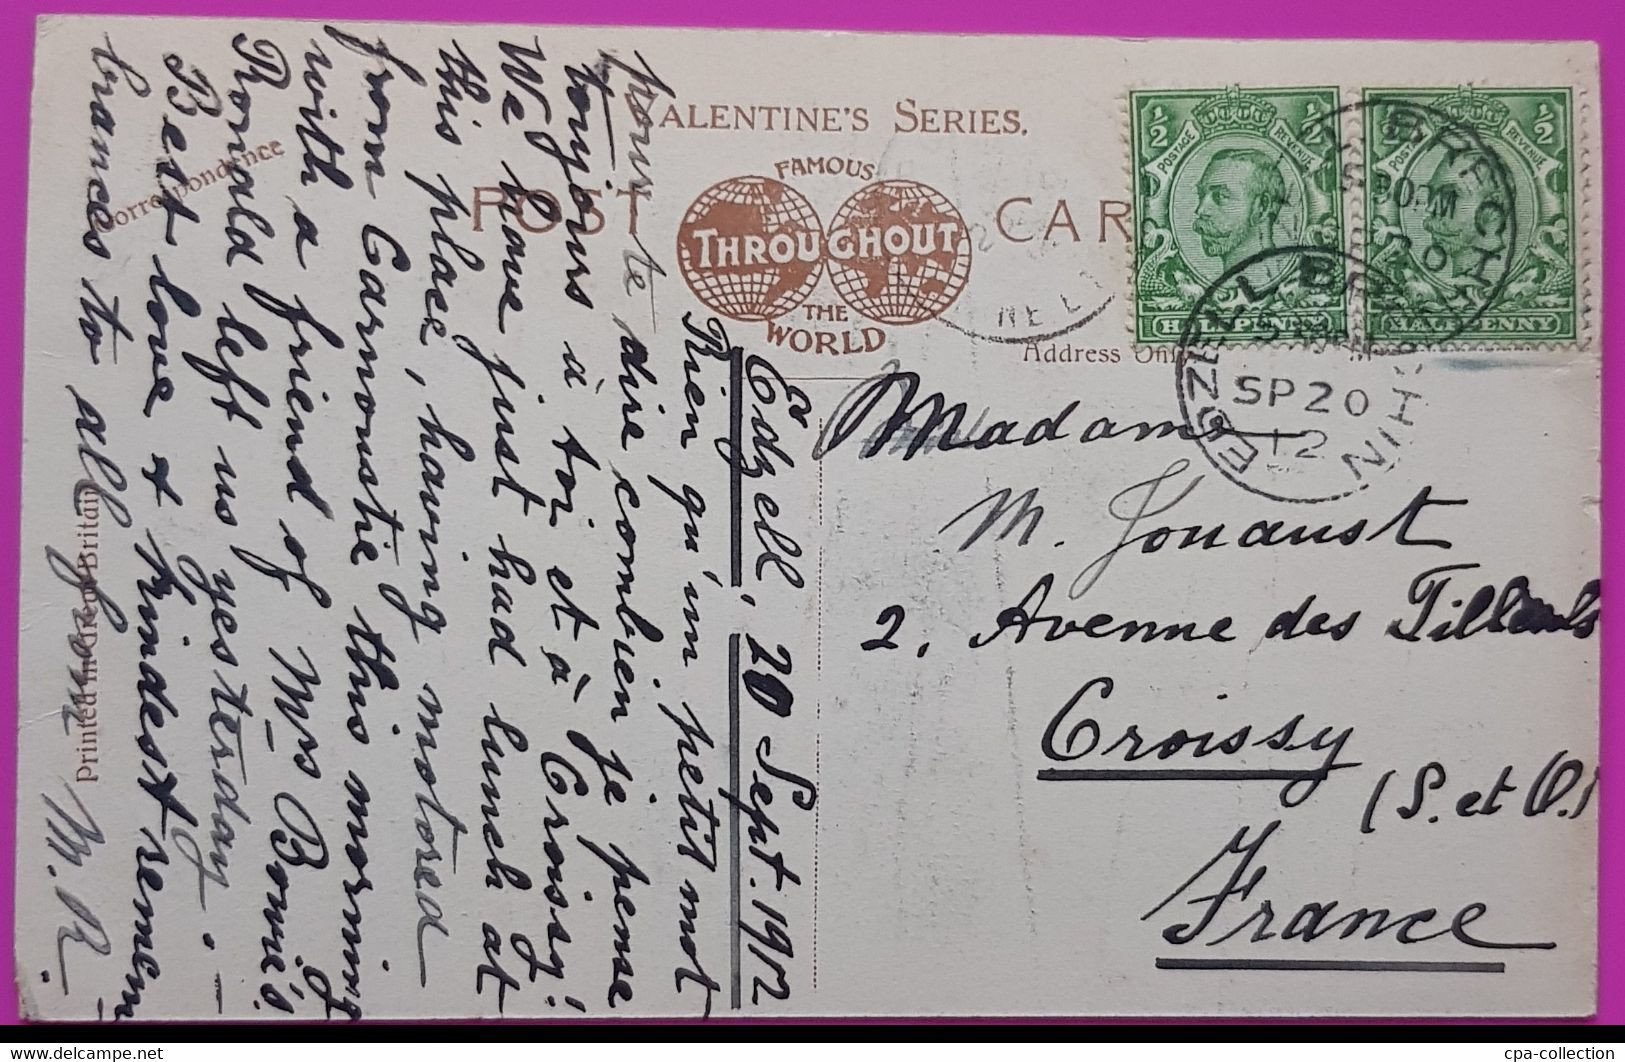 VALENTINE'S SERIES.
FAMOUS
POST CARD
THROUGHOUT
THE
WORLD
Correspondence
Address Only
Printed in Great Britain
1/2 1/2
POSTAGE REVENUE
HALFPENNY
1/2 1/2
POSTAGE REVENUE
HALFPENNY
EDZELL BRECHIN
SP 20
12
Madame
M. Jouaust
2. Avenue des Tilleuls
Croissy
(S. et O.)
France
Edzell, 20 Sept. 1912
Rien qu'un petit mot
pour te dire combien je pense
toujours à toi et à Croissy!
We have just had lunch at
this place, having motored
from Carnoustie this morning
with a friend of Mrs Bonnie's
Ronald left us yesterday. —
Best love & kindest remem
brances to all of
M. R.
cpa-collection
© delcampe.net